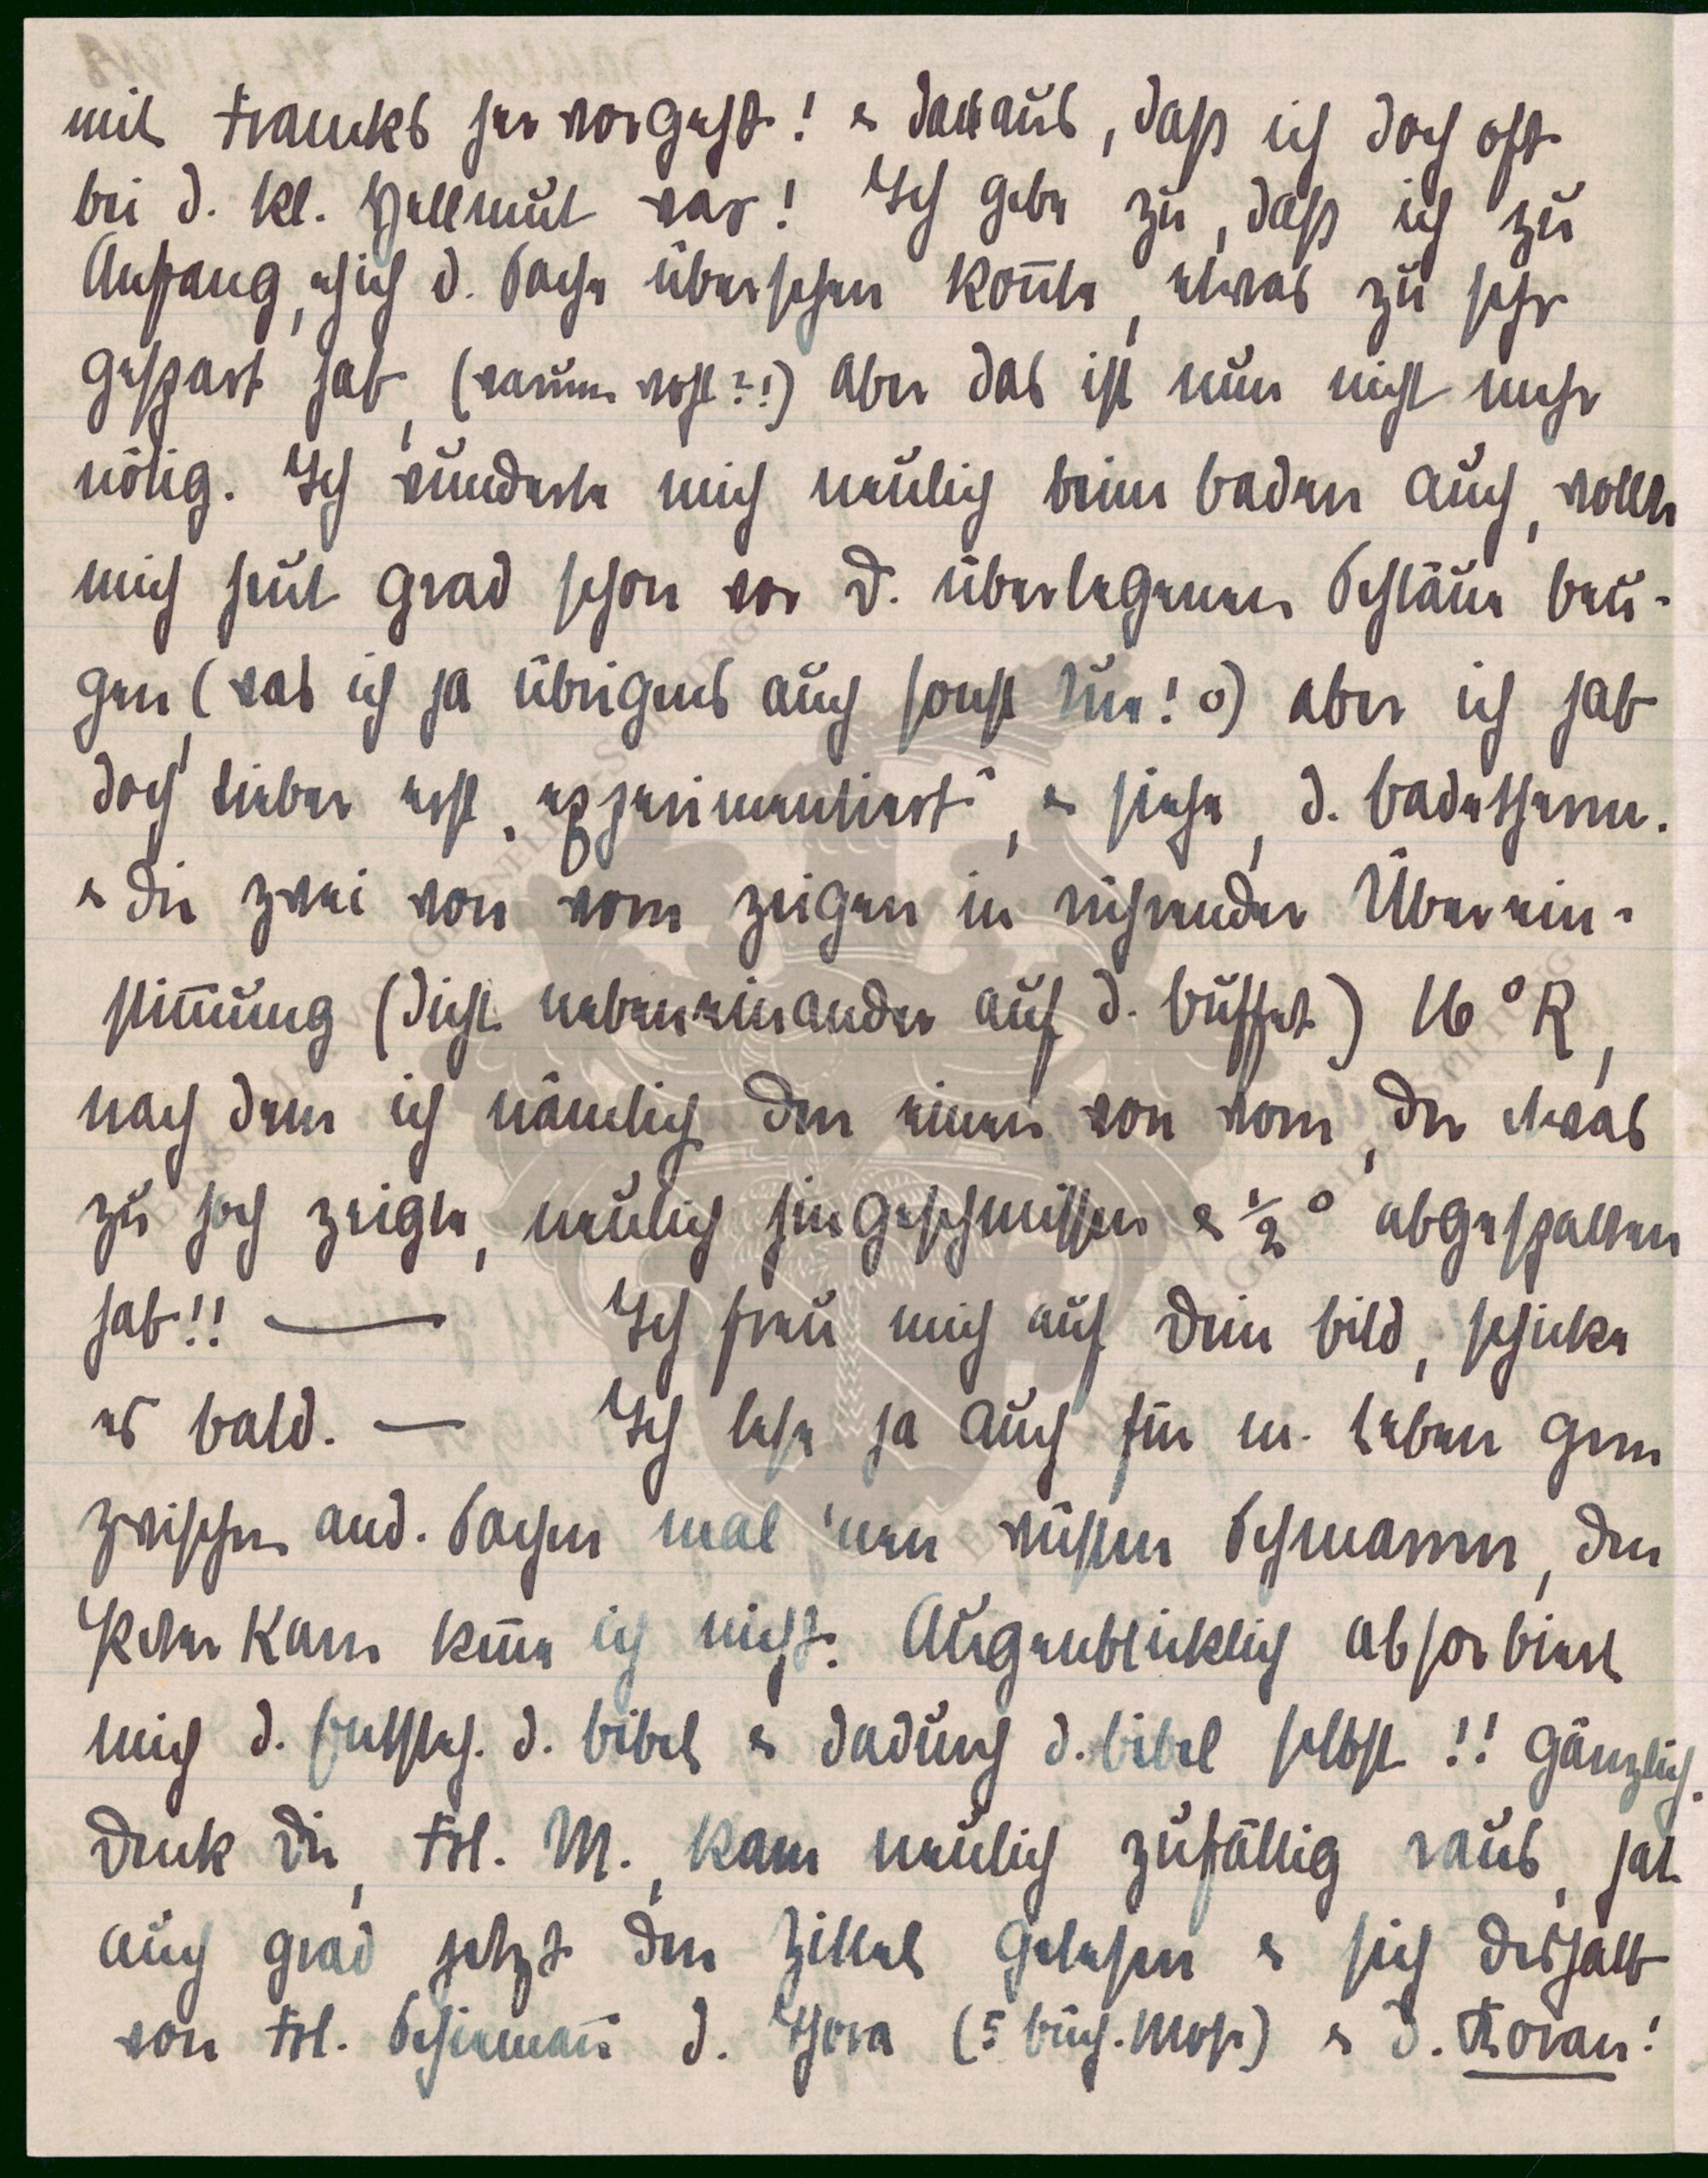 mit Francks hervorgeht! & daraus, daß ich doch oft
bei d. kl. Hellmut war! Ich gebe zu, daß ich zu
Anfang, eh ich d. Sache übersehen kon̄te, etwas zu sehr
gespart hab, (warum wohl?!) aber das ist nun nicht mehr
nötig. Ich wunderte mich neulich beim baden auch, wollte
mich heut grad schon vor D. überlegenen Schläue beu-
gen (was ich ja übrigens auch sonst tue! o) aber ich hab
doch lieber erst „experimentiert", & siehe, d. badetherm.
& die zwei von vorn zeigen in rührender Überein-
stim̄ung (dicht nebeneinander auf d. büffet) 16 °R,
nach dem ich nämlich den einen von vorn, der etwas
zu hoch zeigte, neulich hingeschmissen & ½ ° abgespalten
hab!! — Ich freu mich auf Dein bild, schicke
es bald. — Ich lese ja auch für m. Leben gern
zwischen and. Sachen mal 'nen wüsten Schmarrn, den
Peter Kam ken̄e ich nicht. Augenblicklich absorbiert
mich d. Entsteh. d. bibel & dadurch d. bibel selbst!! gänzlich.
Denk Dir, Frl. M., kam neulich zufällig raus, hat
auch grad jetzt den Zittel gelesen & sich deshalb
von Frl. Schieman̄ d. Thora (5 büch. Mose) & d. Koran!